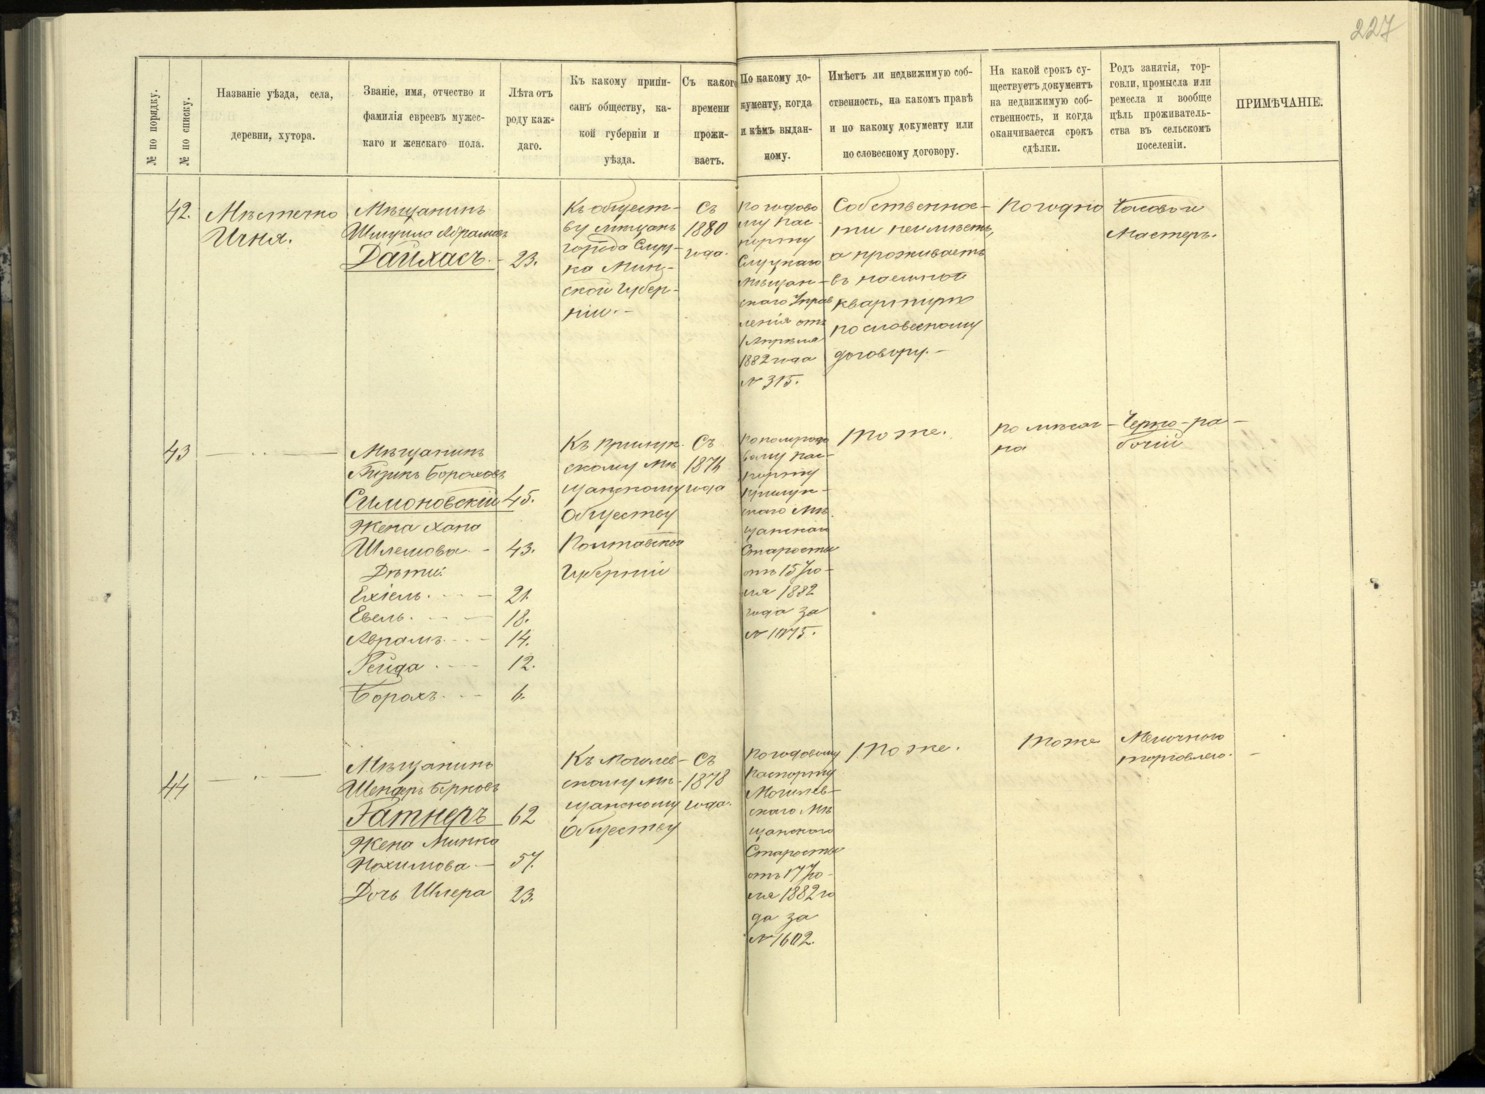 227
№ по порядку.
№ по списку.
Названіе уѣзда, села,
деревни, хутора.
Званіе, имя, отчество и
фамилія евреевъ мужес-
каго и женскаго пола.
Лѣта отъ
роду каж-
даго.
Къ какому припи-
санъ обществу, ка-
кой губерніи и
уѣзда.
Съ какого
времени
прожи-
ваетъ.
По какому до-
кументу, когда
и кѣмъ выдан-
ному.
Имѣетъ ли недвижимую соб-
ственность, на какомъ правѣ
и по какому документу или
по словесному договору.
На какой срокъ су-
ществуетъ документъ
на недвижимую соб-
ственность, и когда
оканчивается срокъ
сдѣлки.
Родъ занятія, тор-
говли, промысла или
ремесла и вообще
цѣль проживатель-
ства въ сельскомъ
поселеніи.
ПРИМѢЧАНІЕ.
42.
Мѣстечко
Ичня.
Мѣщанинъ
Шмуило Абрамовъ
Дайхасъ
23.
Къ общест-
ву мѣщанъ
города Слуц-
ка Мин-
ской Губер-
ніи.
Съ
1880
года.
По годово
му пас-
порту
Слуцкаго
мѣщан-
скаго Управ
ленія отъ
1 Апрѣля
1882 года
№ 315.
Собственнос-
ти неимѣетъ,
а проживаетъ
въ наемной
квартирѣ
по словесному
договору.
Погодно
Часовой
мастеръ.
43
Мѣщанинъ
Борохов
Симоновскій
45.
Жена Хана
Шлемова
43.
Дѣти:
Ехіель
21.
Евель
18.
Аврамъ
14.
12.
Борохъ
6.
Къ Прилук
скому мѣ
щанскому
Обществу
Полтавской
Губерніи
Съ
1876
года
По полуго
вому пас-
порту
Прилук-
скаго Мѣ
щанскаго
Старосты
отъ 15 Ію-
ля 1882
года за
№ 1075.
Тоже.
по мѣсяч-
но
Черно-ра-
бочій
44
Мѣщанинъ
Берковъ
Гатнеръ
62
Жена Минка
Нохимова
57.
Дочь
23.
Къ Могилев-
скому мѣ-
щанскому
Обществу
Съ
1878
года.
По годовому
паспорту
Могилев-
скаго Мѣ
щанского
Старосты
отъ 17 Ію-
ля 1882 го
да за
№ 1602.
Тоже.
Тоже
Мелочною
торговлею.